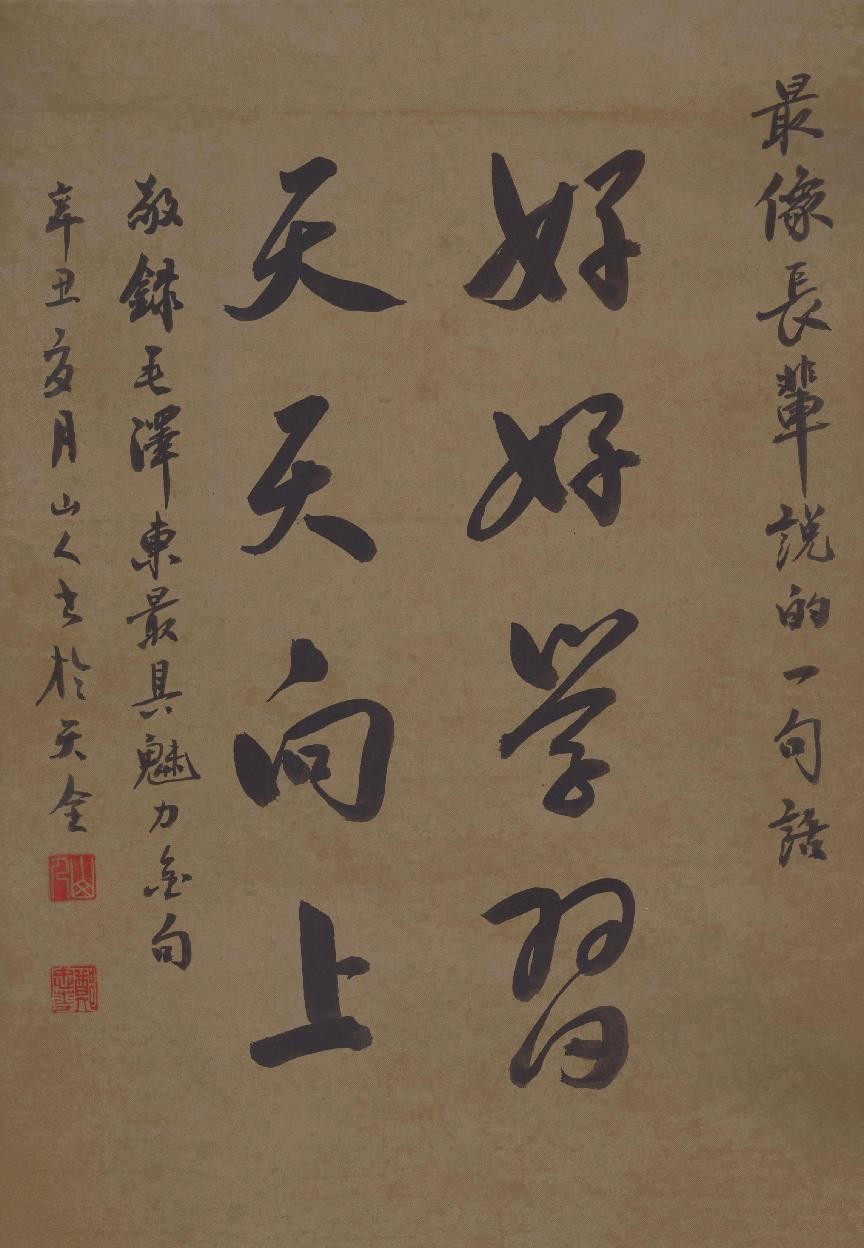 最像長輩説的一句話
好好学習
天天向上
敬録毛澤東最具魅力金句
辛丑亥月山人書於天全
山人